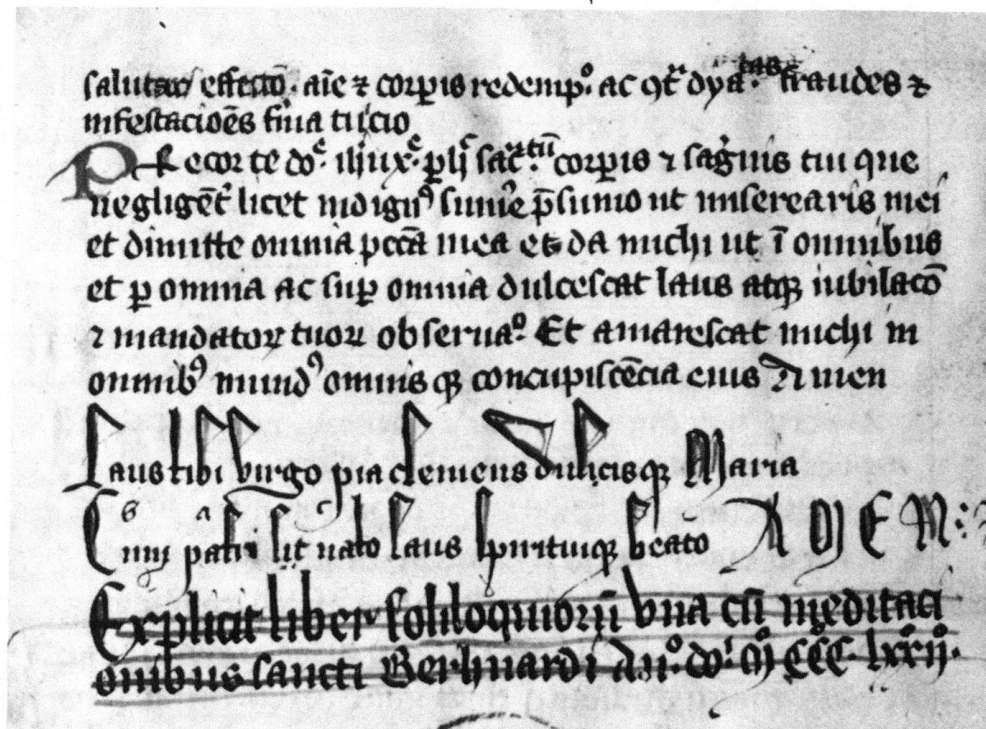 salutar effectū. aīe ⁊ corpis redemp°. ac qͣ dyatas fraudes ⁊
infestacioēs firͣa tuicio
Precor te do͛. ihu xͤ. p hͦ sac̄tū corpis ⁊ sāg̓nis tui que
negligēt̓ licet indignꝰ sum̓e p̄sumo ut miserearis mei
et dimitte omnia pccā mea et da michi ut ī omnibus
et ꝑ omnia ac suꝑ omnia dulcescat laus atqꝫ iubilacō
⁊ mandatoꝝ tuoꝝ obserua°. Et amarescat michi in
omnibꝰ mundꝰ omnis qꝫ concupiscēcia eius Amen
Laus tibi virgo pia clemens dulcisqꝫ Maria
Cum patri sit nato laus spirituiqꝫ beato AMEN
Explicit liber soliloquiorū vna cū meditaci
onibus sancti Bernhardi An°. do͛ mͦ CCCͦ. lxxijͦ.